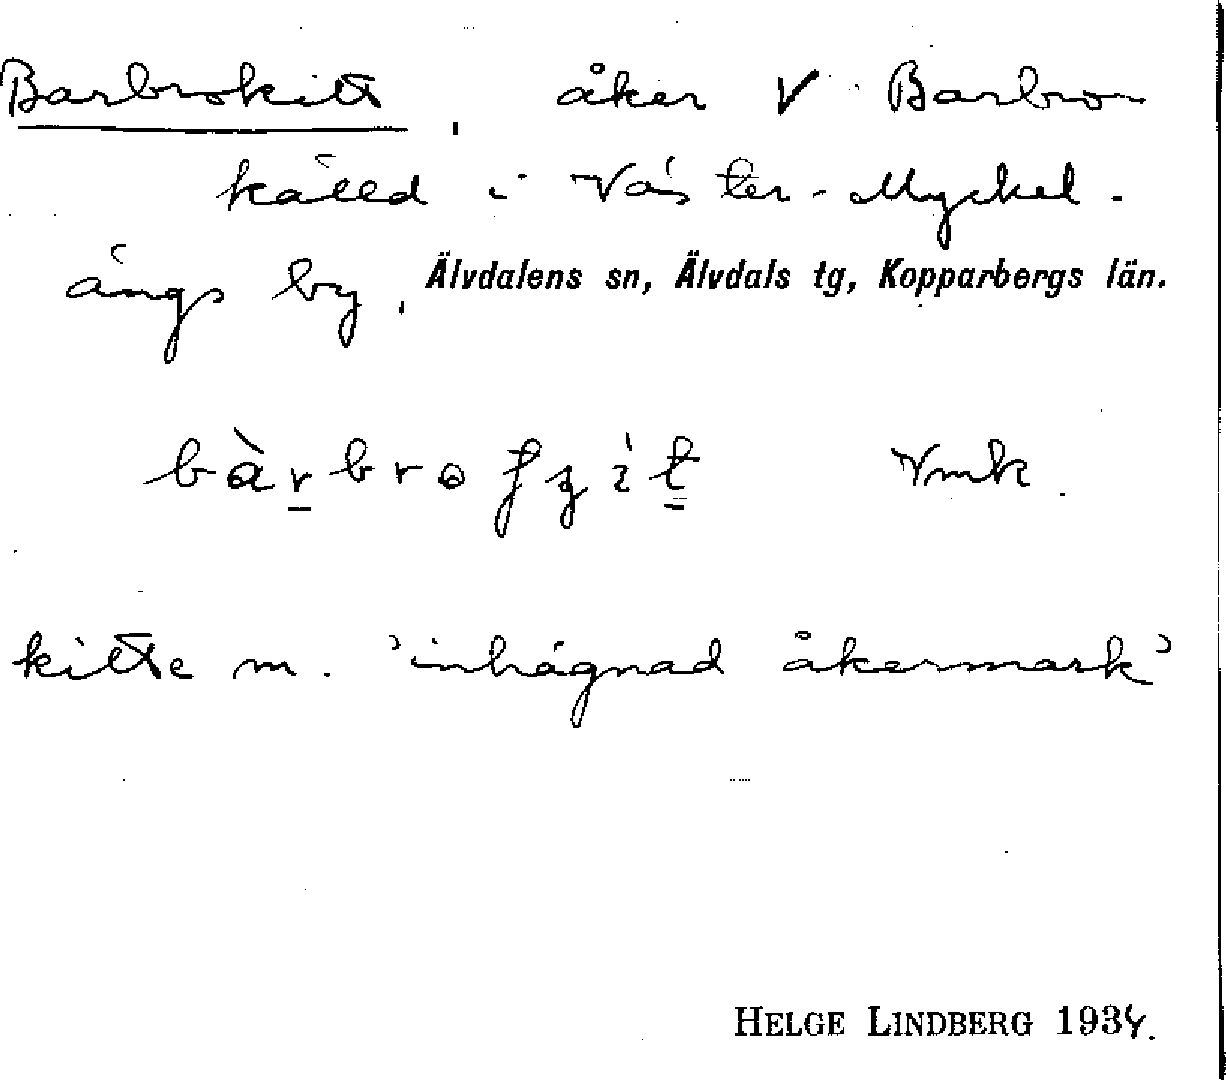 Barbrokitt, åker V Barbro-
källd i Väster-Myckel-
ängs by, Älvdalens sn, Älvdals tg, Kopparbergs län.
Vmk.
kitte m. 'inhägnad åkermark'
HELGE LINDBERG 1934.